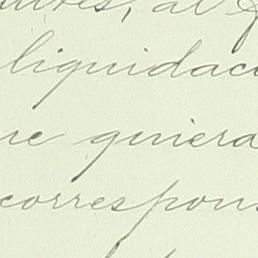 al
liquidac
ue quiera
correspon